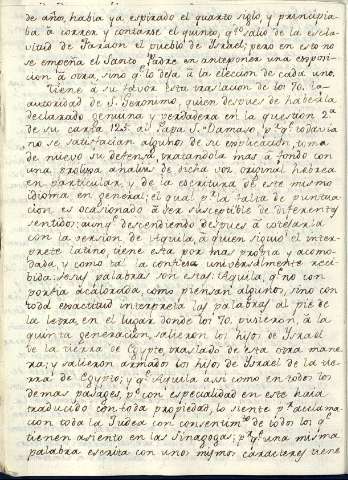 de año, habia ya espirado el quarto siglo, y principia
ba à correr y contarse el quinto, qᵈᵒ salio de la escla
vitud de Faraon el pueblo de Israel; pero en esto no
se empeña el Santo Padre en anteponer una exposi
cion à otra, sino qᵉ lo deja à la eleccion de cada uno.
Tiene à su favor esta traslacion de los 70. la
autoridad de S. Geronimo, quien despues de haberla
declarado genuina y verdadera en la question 2ª
de su carta 125. al Papa S. Damaso, pʳ qᵉ todavia
no se satisfacian algunos de su explicacion, toma
de nuevo su defensa, tratandola mas a fondo con
una prolixa analisis de dicha voz original hebrea
en particular, y de la escritura de este mismo
idioma en general; el qual pʳ la falta de puntua
cion es ocasionado à ser susceptible de diferentes
sentidos; aunqᵉ descendiendo despues à cotejarla
con la version de Aquila, à quien siguió el inter
prete latino, tiene esta por mas propia y acomo
dada, y como tal la confiesa universalmente reci
bida: Sus palabras son estas: Aquila, qᵉ no con
porfia acalorada, como piensan algunos, sino con
toda exactitud interpreta las palabras al pie de
la letra, en el lugar donde los 70. pusieron, à la
quinta generacion, salieron los hijos de Israel
de la tierra de Egypto, traslado de esta otra mane
ra; y salieron armados los hijos de Israel de la tie
rra de Egypto; y qᵉ Aquila assi como en todos los
demas pasages, pᵒ con especialidad en este haia
traducido con toda propiedad, lo siente pʳ aclama
cion toda la Judea con consentimᵗᵒ de todos los qᵉ
tienen asiento en las Sinagogas; pʳ qᵉ una misma
palabra escrita con unos mismos caracteres tiene